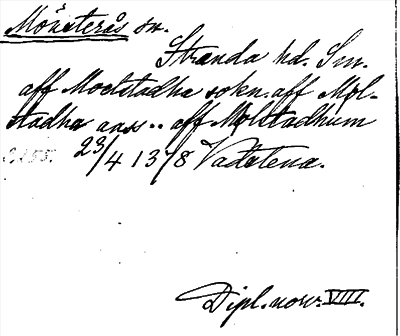 Mönsterås sn.
Stranda hd. Sm.
aff Moelstadha sokn. aff Mol-
stadha anss .. aff Molstadhum
23/4 1378 Vadstena.
Dipl. norv. VIII.